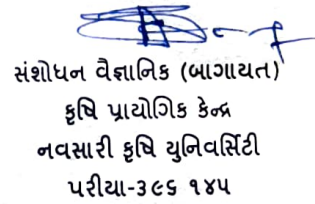 સંશોધન વૈજ્ઞાનિક (બાગાયત)
કૃષિ પ્રાયોગિક કેન્દ્ર
નવસારી કૃષિ યુનિવર્સિટી
પરીયા-૩૯૬ ૧૪૫